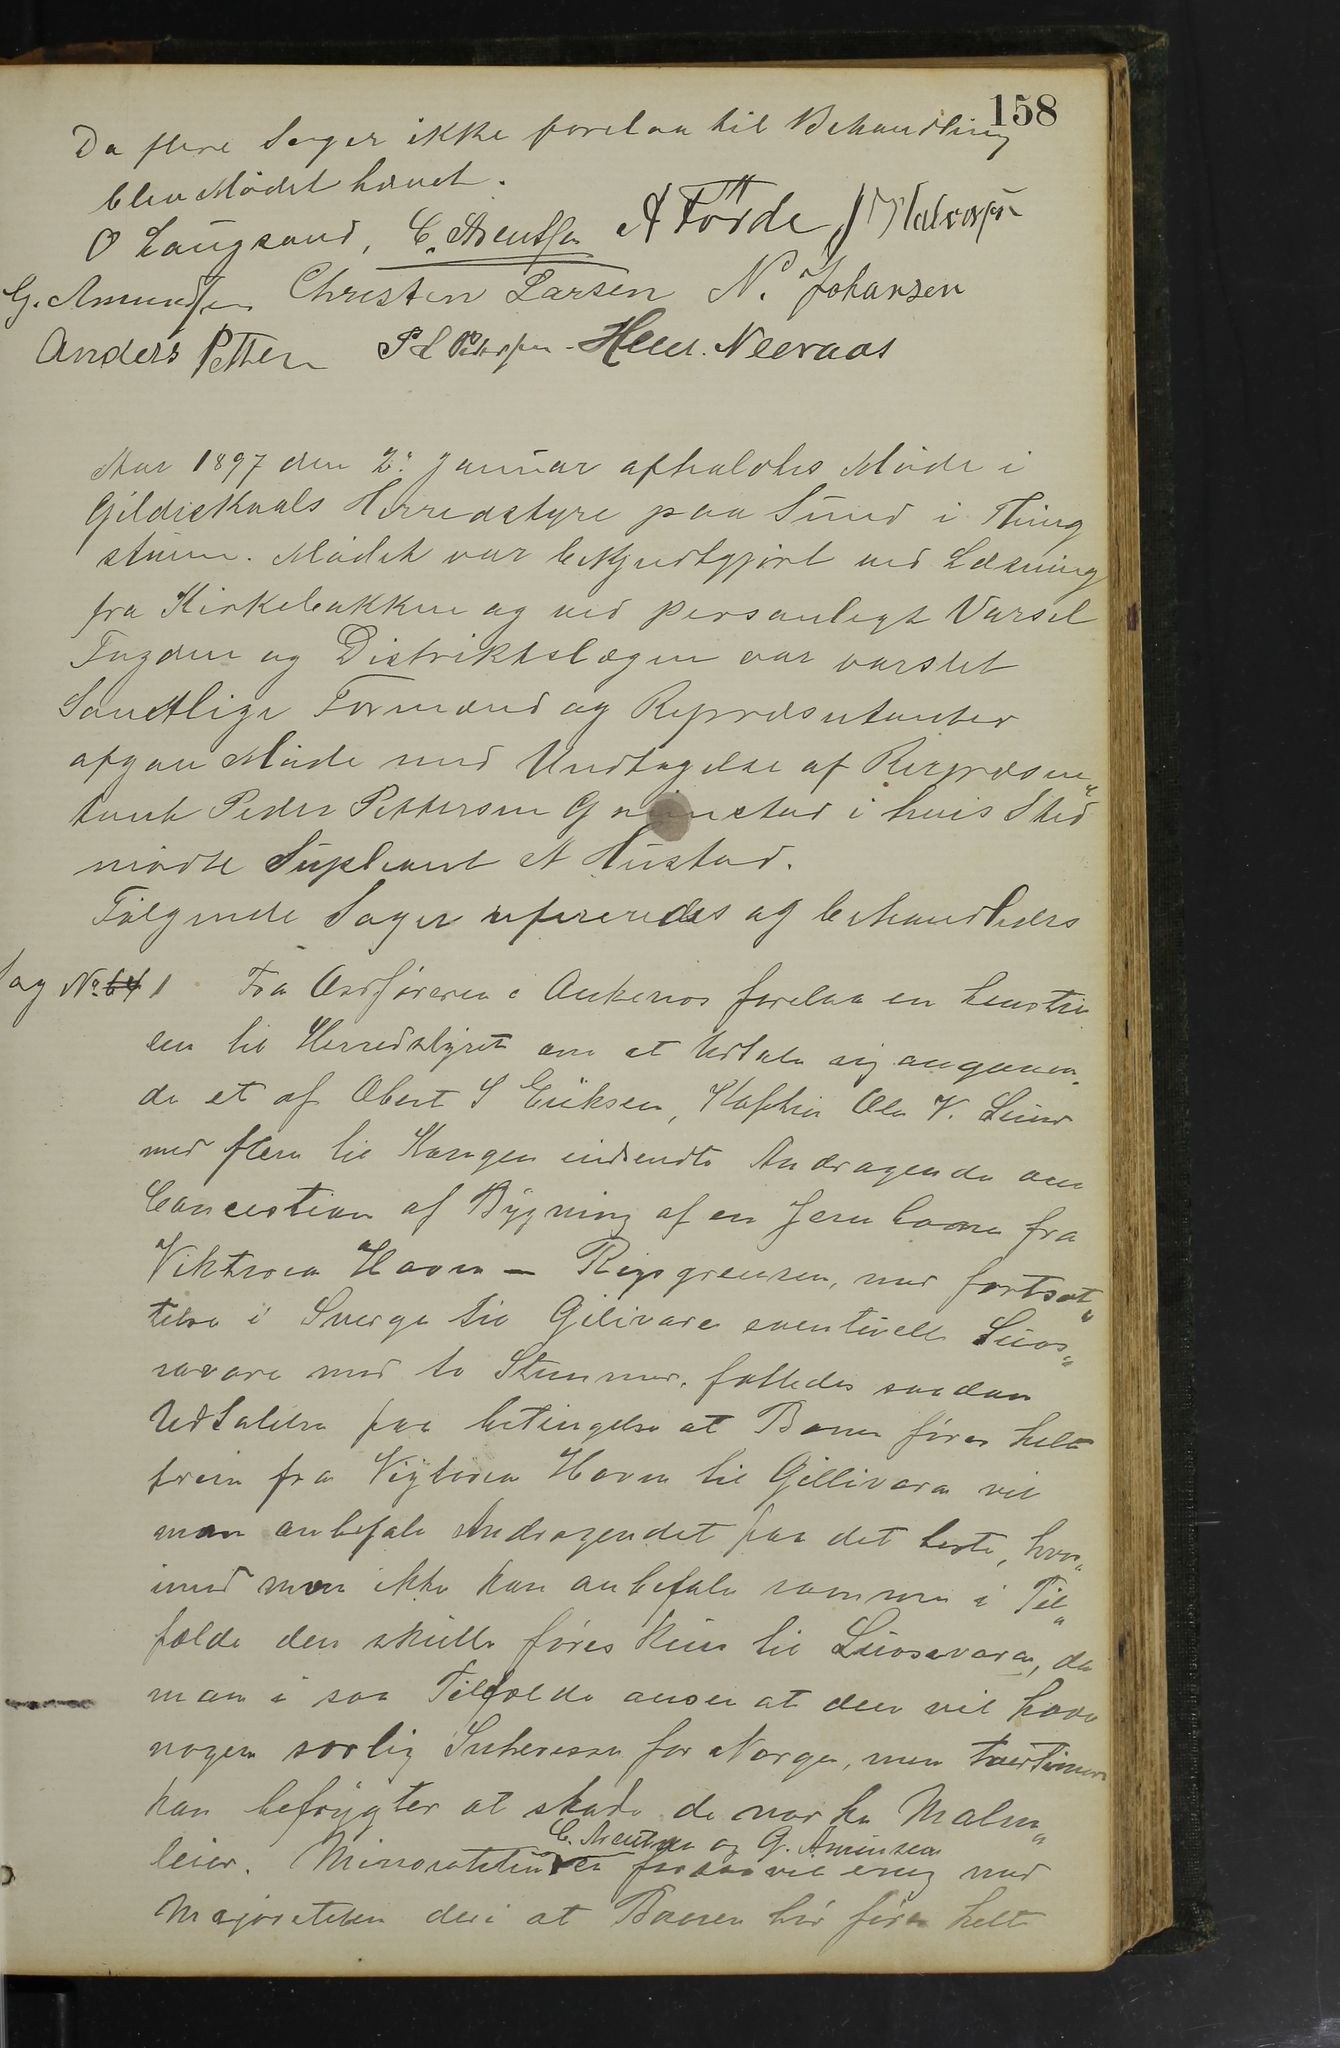 158
Da flere Sager ikke forelaa til Behandling
blev Mødet hævet.
O Laugsand, C. Arentsen A Förde J Halvorsen
G. Amundsen Christen Larsen N. Johansen
Anders Petter P L Pedersen Hem. Neeraas
Aar 1897 den 2. Januar afholdtes Møde i
Gildeskaals Herredstyre paa Sund i Thing
stuen. Mødet var bekjendtgjørt ved Læsning
fra Kirkebakken og ved personligt Varsel
Fogden og Distriktslægen var varslet
Samtlige Formænd og Repræsentanter
afgav Møde med Undtagelse af Repræsen„
tant Peder Pettersen Grimstad i hvis Sted
mødte Supleant A Hustad.
Følgende Sager refereredes og behandledes
Sag No 64 1 Fra Ordføreren i Ankenes forelaa en henstil
len til Herredstyret om at udtale sig angaaen„
de et af Obert S Eriksen, Kaptein Ole V. Lund
med flere til Kongen indsendte Andragende om
Concestion af Bygning af en Jernbane fra
Viktoria Havn – Rigsgrensen, med fortsæt„
telse i Sverge til Gilivare eventuelt Luos„
savare med to Stemmer. fattedes saadan
Udtalelse paa betingelse at Banen føres helt
frem fra Viktoria Havn til Gillivara vil
man anbefale Andragendet paa det beste, hvor„
imod man ikke kan anbefale samme i Til„
fælde den skulle føres kun til Luosavara, da
man i saa Tilfælde anser at den vil have
nogen sørlig Interesse for Norge, men tvertimod
kan befrygtes at skade de norske Malm„
leier. Minoriteten C. Arentsen og G. Amunsen er forsaavit enig med
Majoriteten deri at Banen bør føres helt